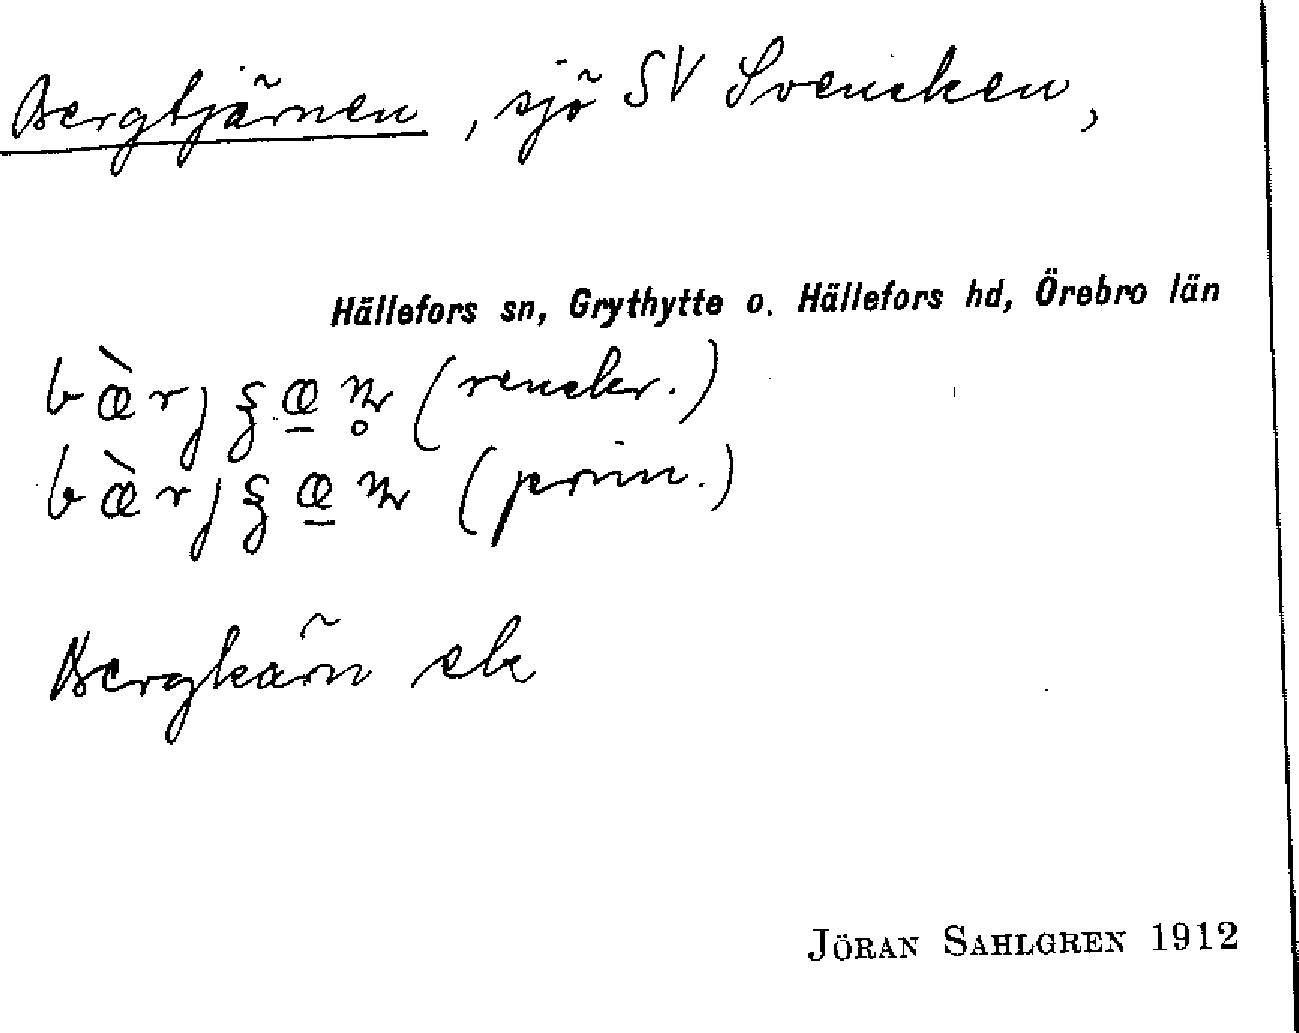 Bergtjärnen, sjö SV Svencken,
Hällefors sn, Grythytte o. Hällefors hd, Örebro län
bæ̀rjʂæ̠n̥ (senckr.)
bæ̀rjʂæ̠n (prim.)
Bergkärn ek
JÖRAN SAHLGREN 1912